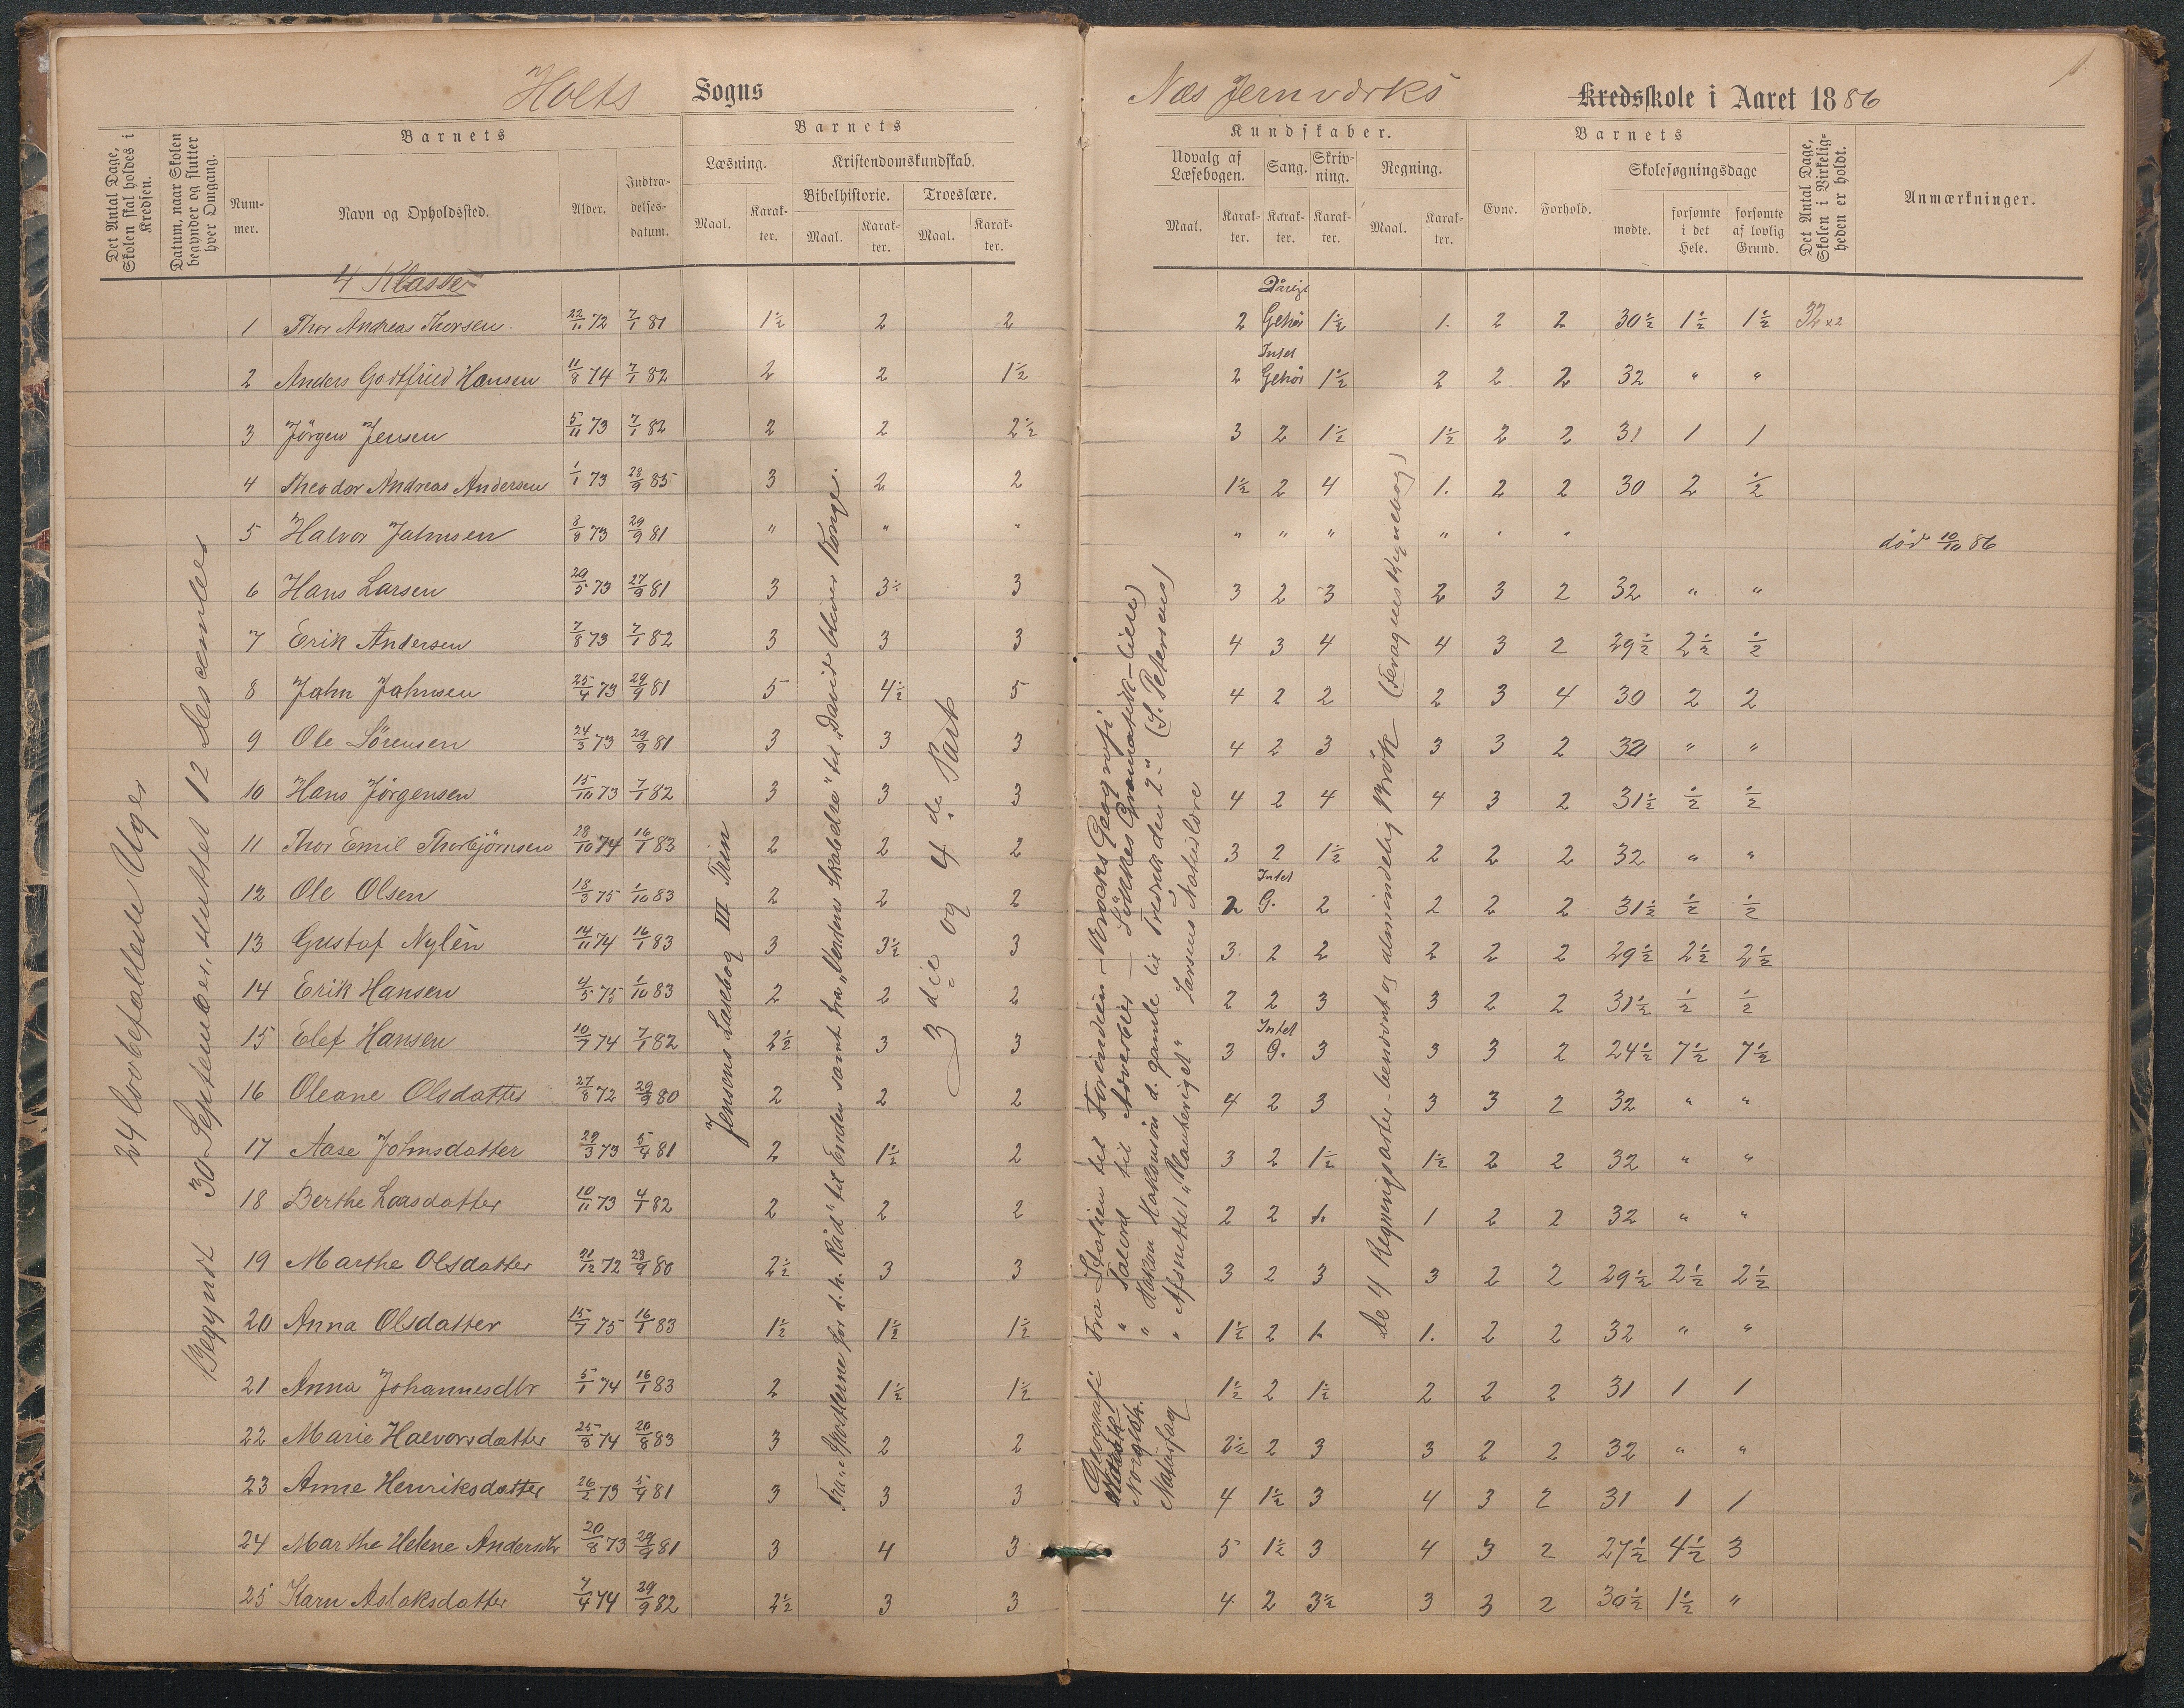 Holts Sogns
Det Antal Dage, Skolen skal holdes i Kredsen.
Datum, naar Skolen begynder og slutter hver Omgang.
Barnets
Nummer.
Navn og Opholdssted.
Alder.
Indtrædelsesdatum.
Barnets
Læsning.
Maal.
Karakter.
Kristendomskundskab.
Bibelhistorie.
Maal.
Karakter.
Troeslære.
Maal.
Karakter.
24 lovbefallede Uger
Begyndt 30 September, sluttet 12 Descember
Jensens Læsebog III Trin
Fra „Apostlerne for d. h. Råd" til Enden samt fra „Verdens Skabelse" til „David bliver Konge.
3die og 4de Part
4 Klasse
1 Thor Andreas Thorsen. 22/11 72 7/1 81 1½ 2 2
2 Anders Godtfried Hansen 11/8 74 7/1 82 2 2 1½
3 Jörgen Jensen 5/11 73 7/1 82 2 2 2½
4 Theodor Andreas Andersen 1/1 73 28/9 85 3 2 2
5 Halvor Jahnsen 3/8 73 29/9 81 " " "
6 Hans Larsen 29/5 73 27/9 81 3 3½ 3
7 Erik Andersen 7/8 73 7/1 82 3 3 3
8 Jahn Jahnsen 25/4 73 29/9 81 5 4½ 5
9 Ole Sörensen 24/3 73 29/9 81 3 3 3
10 Hans Jörgensen 15/10 73 7/1 82 3 3 3
11 Thor Emil Thorbjörnsen 28/10 74 16/1 83 2 2 2
12 Ole Olsen 18/3 75 1/10 83 2 2 2
13 Gustaf Nylén 14/11 74 16/1 83 3 3½ 3
14 Erik Hansen 4/5 75 1/10 83 2 2 2
15 Elef Hansen 10/7 74 7/1 82 2½ 3 3
16 Oleane Olsdatter 27/8 72 29/9 80 2 2 2
17 Aase Johnsdatter 29/3 73 5/4 81 2 1½ 2
18 Berthe Larsdatter 10/11 73 4/1 82 2 2 2
19 Marthe Olsdatter 21/12 72 28/9 80 2½ 3 3
20 Anna Olsdatter 15/7 75 16/1 83 1½ 1½ 1½
21 Anna Johannesdtr 5/1 74 16/1 83 2 1½ 1½
22 Marie Halvorsdatter 25/8 74 20/8 83 3 2 2
23 Anne Henriksdatter 26/2 73 5/4 81 3 3 3
24 Marthe Helene Andersdtr 20/8 73 29/9 81 3 4 3
25 Karn Aslaksdatter 7/4 74 29/9 82 2½ 3 3
Næs Jernværks Kredsskole i Aaret 1886
1.
Kundskaber.
Udvalg af Læsebogen.
Maal.
Karakter.
Sang.
Karakter.
Skrivning.
Karakter.
Regning.
Maal.
Karakter.
Barnets
Evne.
Forhold.
Skolesøgningsdage
mødte.
forsømte i det Hele.
forsømte af lovlig Grund.
Det Antal Dage, Skolen i Virkeligheden er holdt.
Anmærkninger.
Geografi Fra Italien til Forindien – Krogks Geografi
" Talord til Adverbier – Lökkes Gramatik
Norgesh. " Hakon Hakonsön d. gamle til Fredrik den 2." (S. Petersens)
Naturfag " Afsnittet „Planteriget" Larsens Naturlære
De 4 Regningsarter – benævnt og almindelig Brök
2 Dårigt Gehör 1½ 1. 2 2 30½ 1½ 1½ 32
2 Intet Gehör 1½ 2 2 2 32 " "
3 2 1½ 1½ 2 2 31 1 1
1½ 2 4 1. 2 2 30 2 ½
" " " " " " död 10/10 86
3 2 3 2 3 2 32 " "
4 3 4 4 3 2 29½ 2½ ½
4 2 2 2 3 4 30 2 2
4 2 3 3 3 2 32 " "
4 2 4 4 3 2 31½ ½ ½
3 2 1½ 2 2 2 32 " "
2 Intet G. 2 2 2 2 31½ ½ ½
3. 2 2 2 2 2 29½ 2½ 2½
2 2 3 3 2 2 31½ ½ ½
3 Intet G. 3 3 3 2 24½ 7½ 7½
4 2 3 3 3 2 32 " "
3 2 1½ 1½ 2 2 32 " "
2 2 1. 1 2 2 32 " "
3 2 3 3 2 2 29½ 2½ 2½
1½ 2 1. 1. 2 2 32 " "
1½ 2 1½ 2 2 2 31 1 1
2½ 2 3 3 2 2 32 " "
4 1½ 3 4 3 2 31 1 1
5 1½ 3 4 3 2 27½ 4½ 3
4 2 3½ 3 3 2 30½ 1½ "